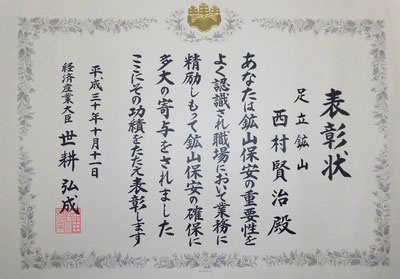 表彰状
足立鉱山
西村賢治殿
あなたは鉱山保安の重要性を
よく認識され職場において業務に
精励しもって鉱山保安の確保に
多大の寄与をされました
ここにその功績をたたえ表彰します
平成三十年十月十一日
経済産業大臣 世耕弘成